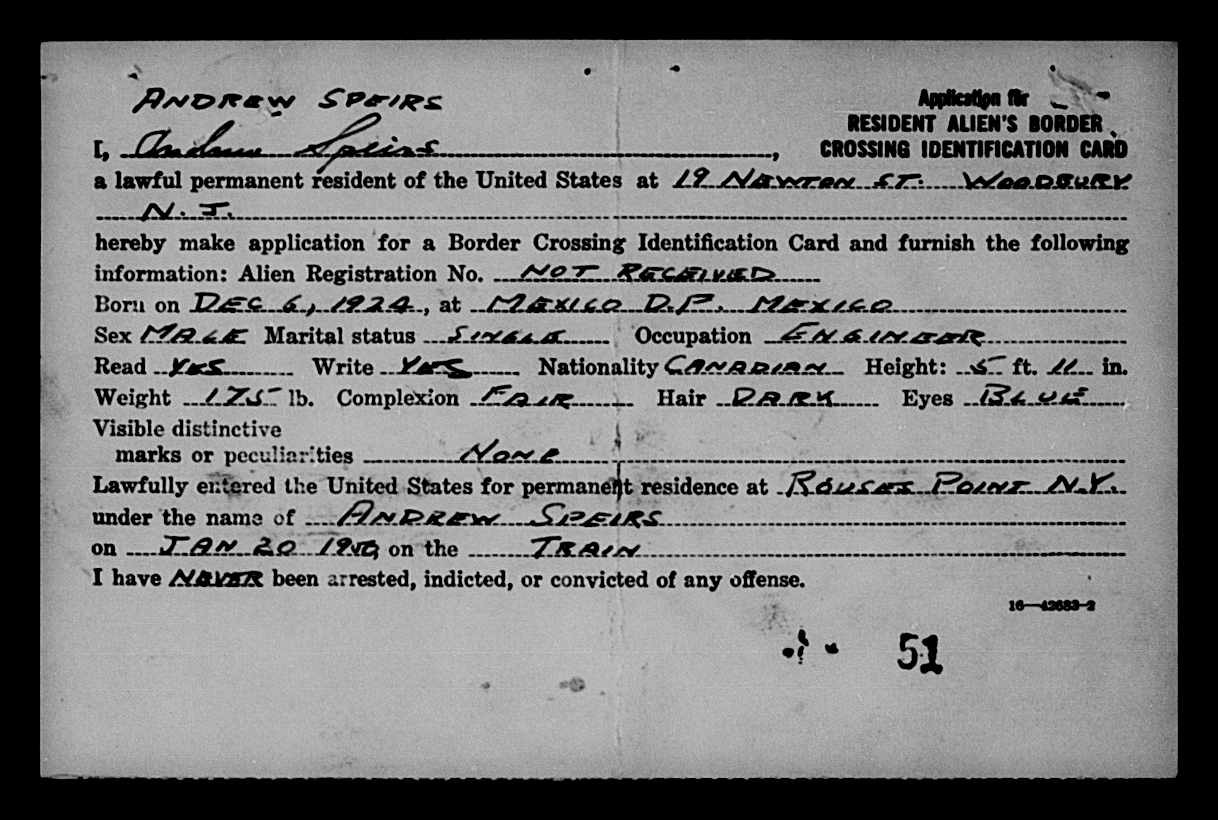 ANDREW SPEIRS
Application for
RESIDENT ALIEN'S BORDER
CROSSING IDENTIFICATION CARD
I, Andrew Speirs,
a lawful permanent resident of the United States at 19 NEWTON ST. WOODBURY
N. J.
hereby make application for a Border Crossing Identification Card and furnish the following
information: Alien Registration No. NOT RECEIVED
Born on DEC 6, 1924, at MEXICO D.F. MEXICO
Sex MALE Marital status SINGLE Occupation ENGINEER
Read YES Write YES Nationality CANADIAN Height: 5 ft. 11 in.
Weight 175 lb. Complexion FAIR Hair DARK Eyes BLUE
Visible distinctive
marks or peculiarities NONE
Lawfully entered the United States for permanent residence at ROUSES POINT N.Y.
under the name of ANDREW SPEIRS
on JAN 20 on the TRAIN
I have NEVER been arrested, indicted, or convicted of any offense.
16—42683-2
51